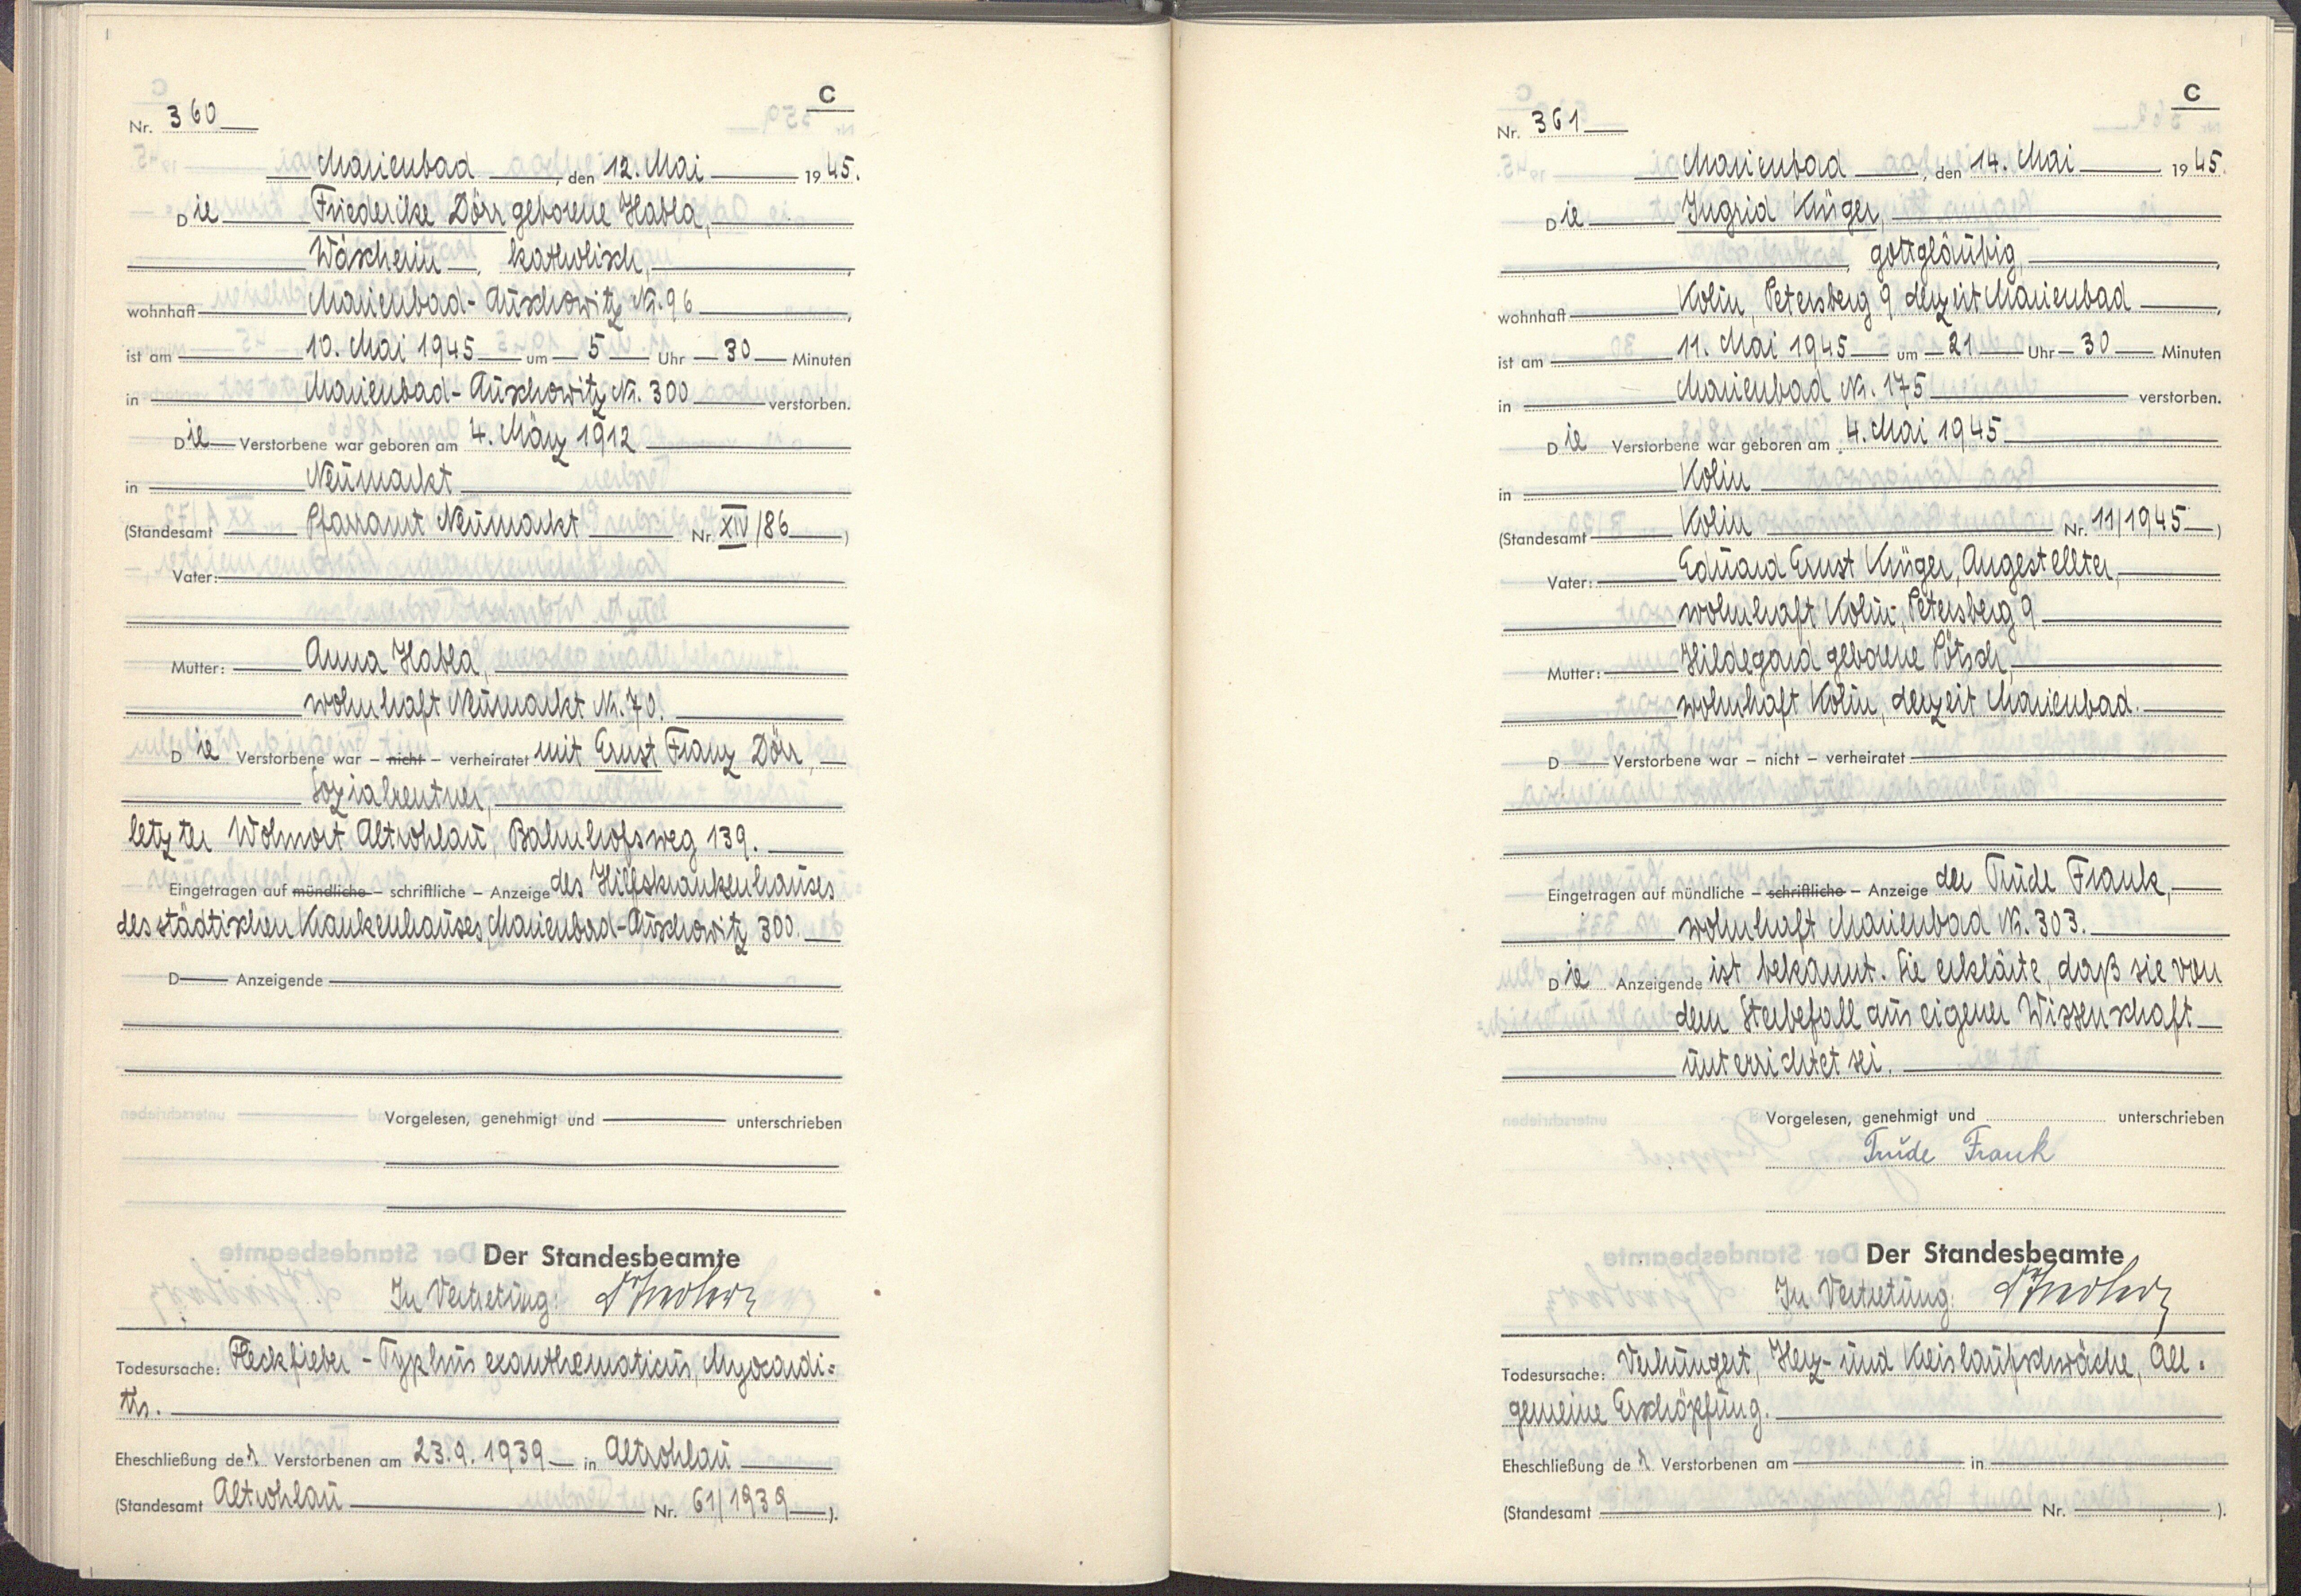 C
Nr. 360
Marienbad, den 12. Mai 1945.
Die Friederike Dörr geborene Habla,
Wäscherin, katholisch,
wohnhaft Marienbad-Auschowitz Nr. 96,
ist am 10. Mai 1945 um 5 Uhr 30 Minuten
in Marienbad-Auschowitz Nr. 300 verstorben.
Die Verstorbene war geboren am 4. März 1912
in Neumarkt
(Standesamt Pfarramt Neumarkt Nr. XIV/86)
Vater:
Mutter: Anna Habla,
wohnhaft Neumarkt Nr. 70.
Die Verstorbene war – nicht – verheiratet mit Ernst Franz Dörr,
Sozialrentner,
letzter Wohnort Altrohlau, Bahnhofsweg 139.
Eingetragen auf mündliche – schriftliche – Anzeige des Hilfskrankenhauses
des städtischen Krankenhauses, Marienbad-Auschowitz 300.
D Anzeigende
Vorgelesen, genehmigt und unterschrieben
Der Standesbeamte
In Vertretung:
Todesursache: Fleckfieber - Typhus exanthematicus, Myocardi-
tis.
Eheschließung der Verstorbenen am 23.9.1939 in Altrohlau
(Standesamt Altrohlau Nr. 61/1939).
C
Nr. 361
Marienbad, den 14. Mai 1945.
Die Ingrid Krüger,
, gottgläubig,
wohnhaft Kolin, Petersberg 9 derzeit Marienbad,
ist am 11. Mai 1945 um 21 Uhr 30 Minuten
in Marienbad Nr. 175 verstorben.
Die Verstorbene war geboren am 4. Mai 1945
in Kolin
(Standesamt Kolin Nr. 11/1945)
Vater: Eduard Ernst Krüger, Angestellter,
wohnhaft Kolin, Petersberg 9
Mutter: Hildegard geborene Pötsch,
wohnhaft Kolin, derzeit Marienbad.
D Verstorbene war – nicht – verheiratet
Eingetragen auf mündliche – schriftliche – Anzeige der Trude Frank,
wohnhaft Marienbad Nr. 303.
Die Anzeigende ist bekannt. Sie erklärte, daß sie von
dem Sterbefall aus eigener Wissenschaft
unterrichtet sei.
Vorgelesen, genehmigt und unterschrieben
Trude Frank
Der Standesbeamte
In Vertretung:
Todesursache: Verhungert, Herz- und Kreislaufschwäche, All-
gemeine Erschöpfung.
Eheschließung der Verstorbenen am in
(Standesamt Nr. ).